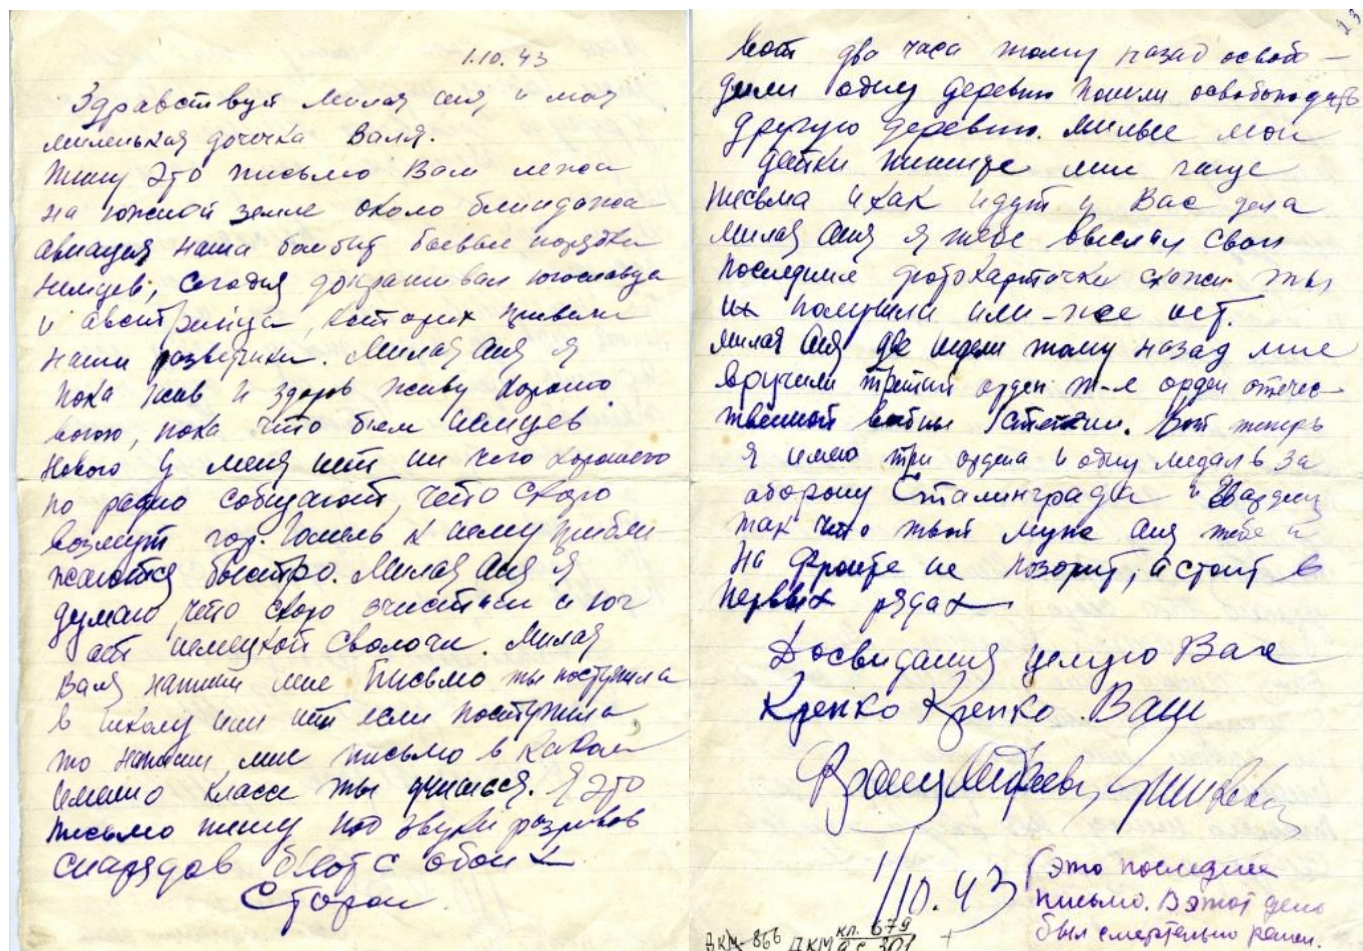 1.10.43
Здравствуй милая Аня и моя
миленькая дочечка Валя.
Пишу это письмо Вам лежа
на южной земле около блиндажа
авиация наша бомбит боевые порядки
немцев, сегодня допрашивал югославца
и австрийца, которих привели
наши разветчики. Милая Аня я
пока жив и здоров живу хорошо.
воюю, пока что бьем немцев
нового у меня нет ни чего хорошего
по радио собщают, что скоро
возмут гор. Гомель к нему прибли-
жаются быстро. Милая Аня я
думаю, что скоро очистим и юг
от немецкой сволочи. Милая
Валя напиши мне письмо ты поступила
в школу или нет если поступила,
то напиши мне письмо в каком
имено класе ты учишься. Я это
письмо пишу под звуки разривов
снарядов бьют с обоих
Сторон.
23
Вот два часа тому назад освобо-
дили одну деревню пошли освобождать
другую деревню. Милые мои
детки пишите мне чаще
письма и как идут у Вас дела
милая Аня я тебе выслал свои
последние фотокарточки скажи ты
их получила или-же нет.
милая Аня две недели тому назад мне
вручили третий орден т-е орден отечес-
твенной войны Iстепени. Вот теперь
я имею три ордена и одну медаль за
оборону Сталинграда и Гвардеец
так что твой муж Аня тебе и
на фронте не позорит, а стоит в
первых рядах
Досвидания целую Вас
Крепко Крепко. Ваш
1/10.43
Это последнее
письмо. В этот день
был смертельно ранен.
ДКМ-866
ДКМ кп. 679